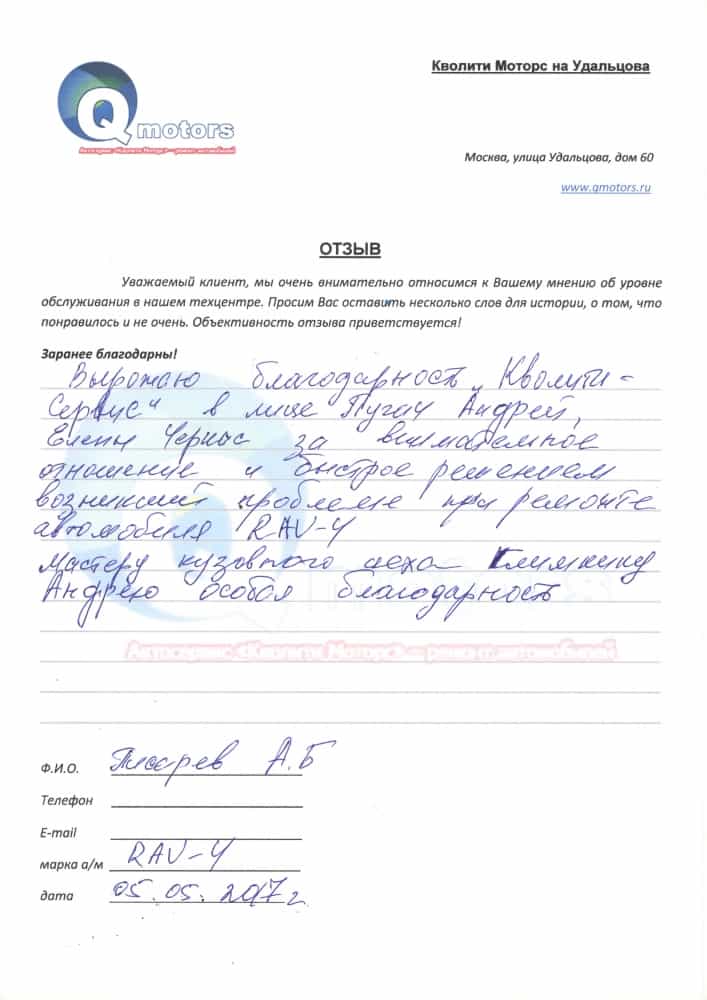 Кволити Моторс на Удальцова
Q motors
Автосервис «Кволити Моторс» — ремонт автомобилей
Москва, улица Удальцова, дом 60
www.qmotors.ru
ОТЗЫВ
Уважаемый клиент, мы очень внимательно относимся к Вашему мнению об уровне
обслуживания в нашем техцентре. Просим Вас оставить несколько слов для истории, о том, что
понравилось и не очень. Объективность отзыва приветствуется!
Заранее благодарны!
Выражаю благодарность „Кволити-
Сервис" в лице Пугач Андрей,
Елены за внимательное
отношение и быстрое решением
возникшей проблеме при ремонте
автомобиля RAV-4
Мастеру кузовного цеха Климкину
Андрею особая благодарность
motors
Автосервис «Кволити Моторс» — ремонт автомобилей
Ф.И.О. А.Б
Телефон
E-mail
марка а/м RAV-4
дата 05.05.2017г